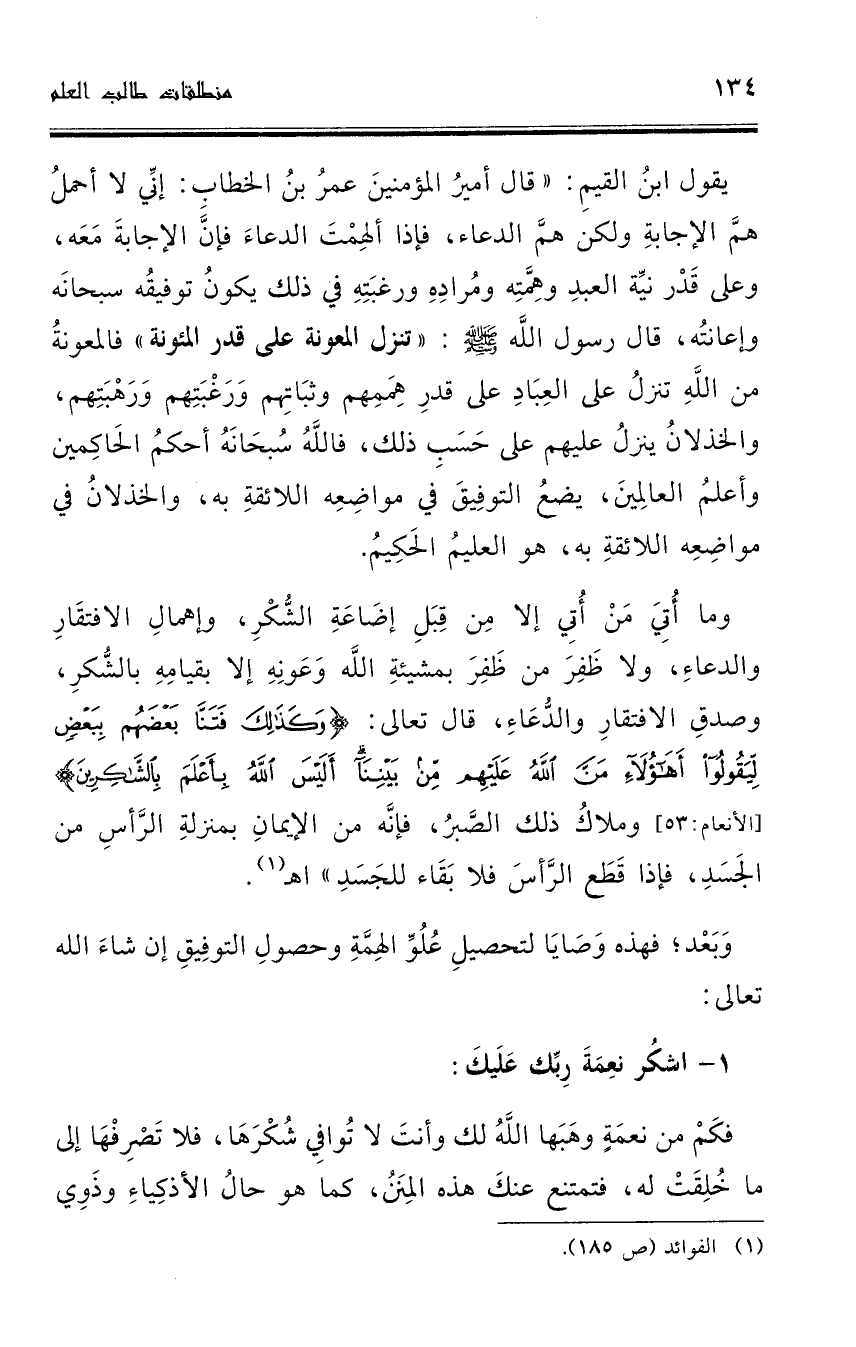 ١٣٤ منطلقات طالب العلم
يقول ابنُ القيمِ: « قال أميرُ المؤمنينَ عمرُ بنُ الخطابِ: إنِّي لا أحملُ
همَّ الإجابةِ ولكن همَّ الدعاء، فإذا ألهِمْتَ الدعاءَ فإنَّ الإجابةَ مَعَه،
وعلى قَدْر نيِّة العبدِ وهِمَّتِه ومُرادِهِ ورغبَتِهِ في ذلك يكونُ توفيقُه سبحانَه
وإعانتُه، قال رسول اللَّه ﷺ : «تنزل المعونة على قدر المئونة» فالمعونةُ
من اللَّهِ تنزلُ على العِبَادِ على قدرِ هِمَمِهم وثبَاتِهم وَرَغْبَتِهم وَرَهْبَتِهم،
والخذلانُ ينزلُ عليهم على حَسَبِ ذلك، فاللَّهُ سُبحَانَهُ أحكمُ الحَاكِمين
وأعلمُ العالمِينَ، يضعُ التوفِيقَ في مواضِعِه اللائقةِ به، والخذلانُ في
مواضِعِه اللائقةِ به، هو العليمُ الحَكِيمُ.
وما أُتِيَ مَنْ أُتِي إلا مِن قِبَلِ إضَاعَةِ الشُّكْرِ، وإهمالِ الافتقَارِ
والدعاءِ، ولا ظَفِرَ من ظَفِرَ بمشيئةِ اللَّه وَعَونِهِ إلا بقيامِهِ بالشُّكرِ،
وصدقِ الافتقارِ والدُّعَاءِ، قال تعالى: ﴿وَكَذَٰلِكَ فَتَنَّا بَعْضَهُم بِبَعْضٍ
لِّيَقُولُوٓا۟ أَهَٰٓؤُلَآءِ مَنَّ ٱللَّهُ عَلَيْهِم مِّنۢ بَيْنِنَآ ۗ أَلَيْسَ ٱللَّهُ بِأَعْلَمَ بِٱلشَّٰكِرِينَ﴾
[الأنعام:٥٣] وملاكُ ذلك الصَّبرُ، فإنَّه من الإيمانِ بمنزلةِ الرَّأسِ من
الجَسَدِ، فإذا قَطَع الرَّأسَ فلا بَقَاء للجَسَدِ» اهـ(١).
وَبَعْد؛ فهذه وَصَايَا لتحصيلِ عُلُوِّ الهِمَّةِ وحصولِ التوفِيقِ إن شاءَ الله
تعالى:
١- اشكُر نعِمَةَ رِبِّك عَلَيكَ:
فكَمْ من نعمَةٍ وهَبَها اللَّهُ لك وأنتَ لا تُوافي شُكْرَهَا، فلا تَصْرِفْهَا إلى
ما خُلِقَتْ له، فتمتنع عنكَ هذه المِنَنُ، كما هو حالُ الأذكِياءِ وذَوِي
(١) الفوائد (ص ١٨٥).